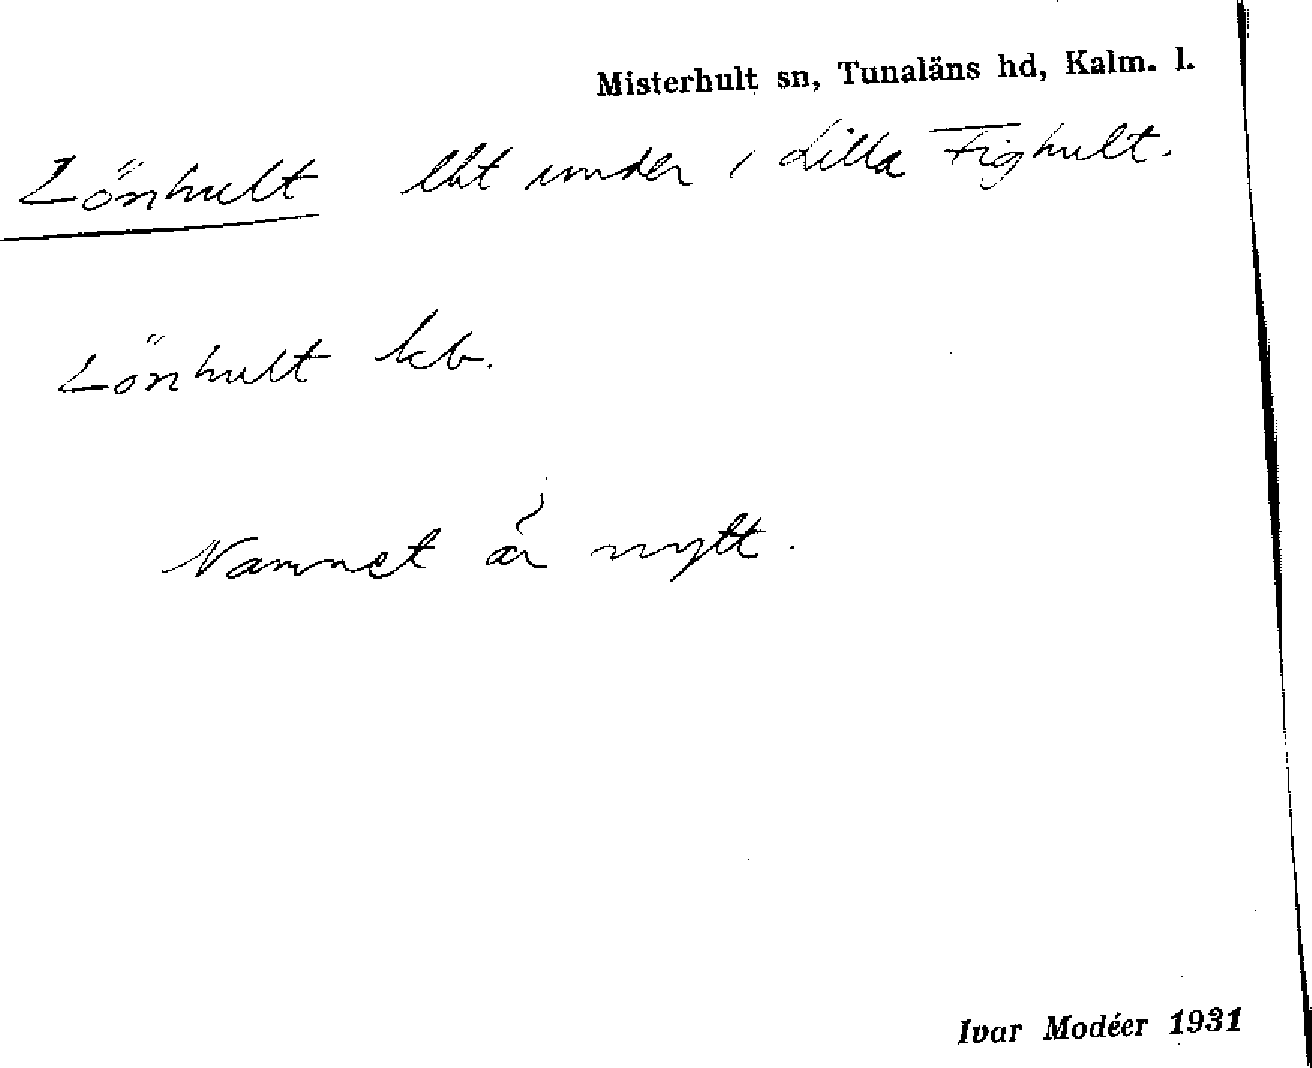 Misterhult sn, Tunaläns hd, Kalm. l.
Lönhult lht under 1 Lilla Fighult.
Lönhult kb.
Namnet är nytt.
Ivar Modéer 1931